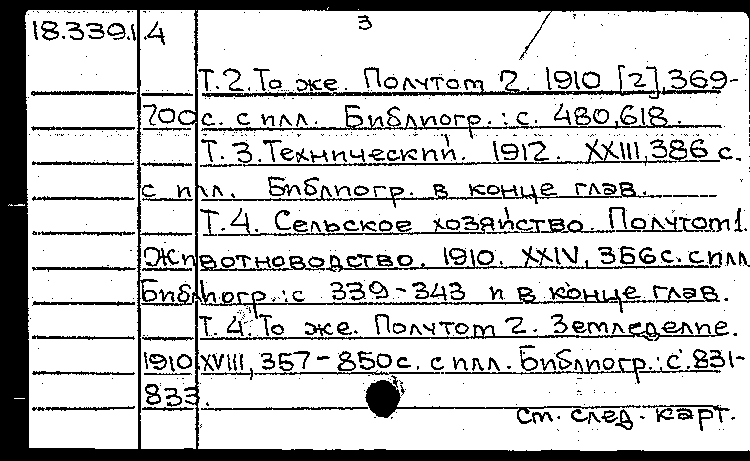 3
18.339.1.4
Т.2. То же. Полутом 2. 1910 [2], 369-
700с. с илл. Библиогр.: с. 480,618.
Т. 3. Технический. 1912. XXIII, 386 с.
с илл. Библиогр. в конце глав.
Т.4. Сельское хозяйство. Полутом 1.
Животноводство. 1910. XXIV, 356с. с илл
Библиогр.: с 339-343 и в конце глав.
Т. 4. То же. Полутом 2. Земледелие.
1910. XVIII, 357-850с. с илл. Библиогр.: с. 831-
833.
см. след. карт.